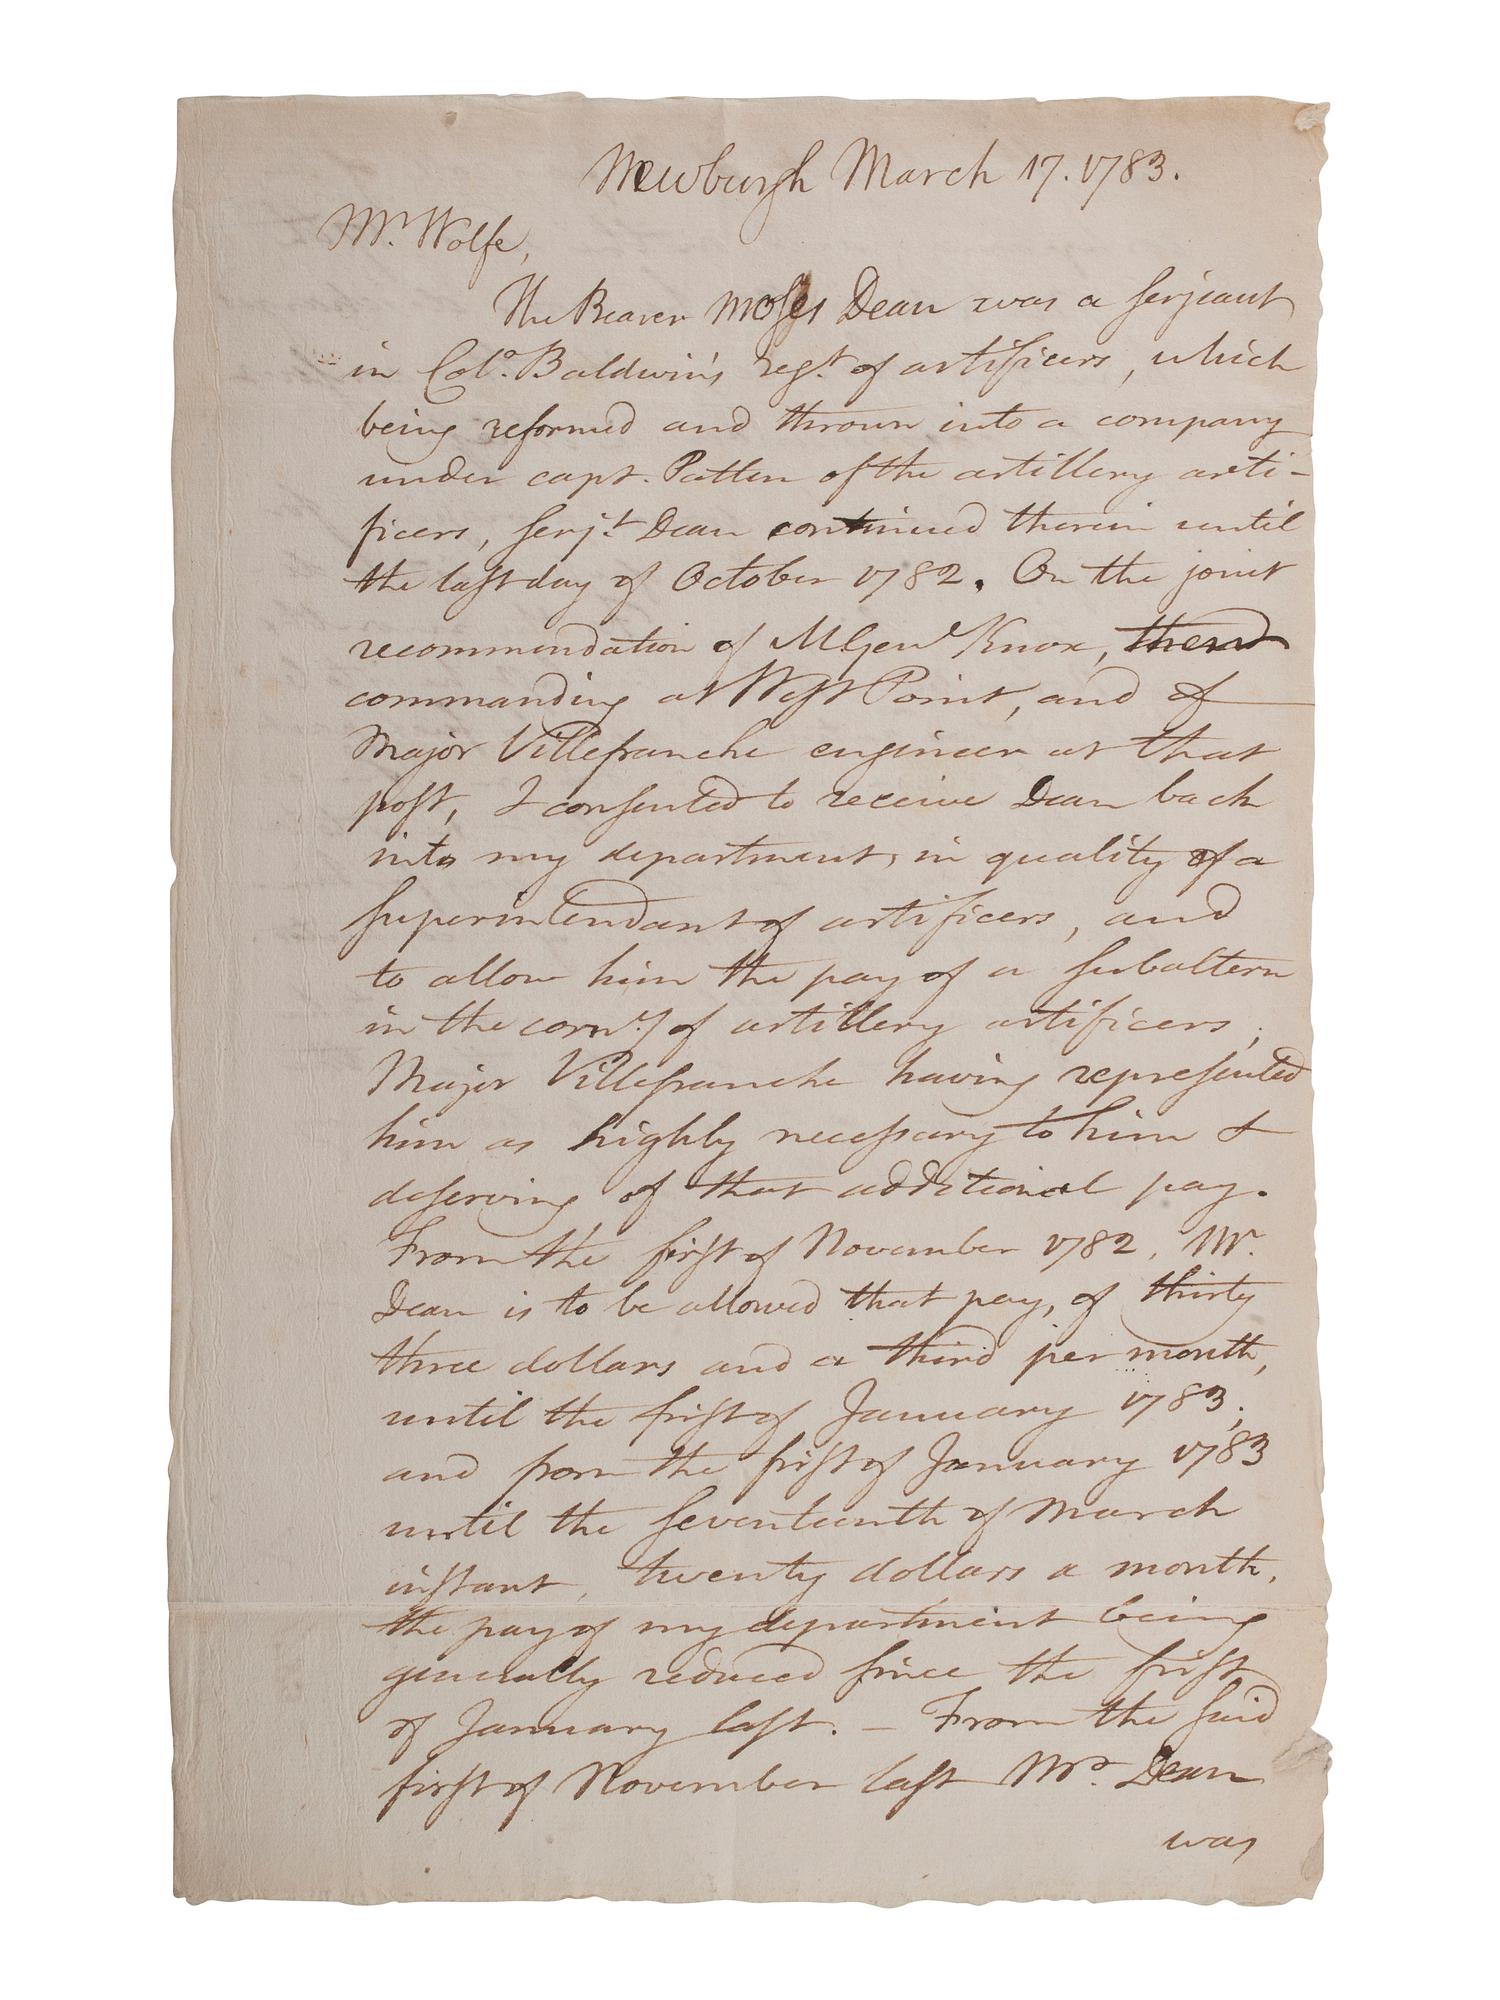 Newburgh March 17. 1783.
Mr. Wolfe,
The Bearer Moses Dean was a serjeant
in Colo. Baldwin's regt. of artificers, which
being reformed and thrown into a company
under capt. Patten of the artillery arti-
ficers, serjt. Dean continued therein until
the last day of October 1782. On the joint
recommendation of M Genl Knox,
commanding at West Point, and of
Major Villefranche engineer at that
post, I consented to receive Dean back
into my department, in quality of a
superintendant of artificers, and
to allow him the pay of a subaltern
in the of artillery artificers,
Major Villefranche having represented
him as highly necessary to him &
deserving of that additional pay.
From the first of November 1782, Mr.
Dean is to be allowed that pay, of thirty
three dollars and a third per month,
until the first of January 1783;
and from the first of January 1783
until the seventeenth of March
instant, twenty dollars a month,
the pay of my department being
generally reduced since the first
of January last. – From the said
first of November last Mr. Dean
was